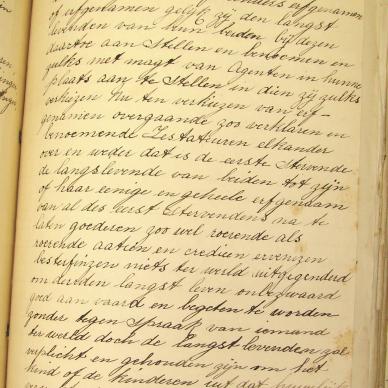 erfgenamen
of erfgenamen gelijk zij den langst
levenden van hun beiden bij dezen
daartoe aan Stellen en benoemen en
zulks met magt van Agenten in hunne
plaats aan te Stellen in dien zij zulks
verkiezen Nu ten verkiezen van erf-
genamen overgaande zoo verklaren en
benoemende Testateuren elkander
over en weder dat is de eerste Stervende
de langslevende van beiden tot zijn
of haar eenige en geheele erfgenaam
van al des eerst Stervendens na te
laten goederen zoo wel roerende als
roerende actiën en credieu
niets ter weld uitgezonderd
om der den langst leven onbezwaard
goed aan vaard en begeten te worden
zonder tegen Spraak van iemand
ter weld doch de langst levenden zal
verplicht en gehouden zijn om het
kend of de kinderen uit dat